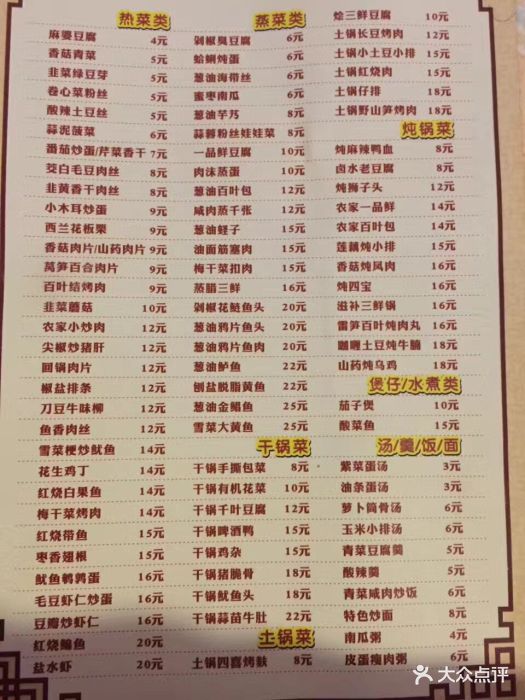 热菜类
麻婆豆腐 4元
香菇青菜 5元
韭菜绿豆芽 5元
卷心菜粉丝 5元
酸辣土豆丝 5元
蒜泥菠菜 6元
番茄炒蛋/芹菜香干 7元
茭白毛豆肉丝 8元
韭黄香干肉丝 8元
小木耳炒蛋 9元
西兰花板栗 9元
香菇肉片/山药肉片 9元
莴笋百合肉片 9元
百叶结烤肉 9元
韭菜蘑菇 10元
农家小炒肉 12元
尖椒炒猪肝 12元
回锅肉片 12元
椒盐排条 12元
刀豆牛味柳 12元
鱼香肉丝 12元
雪菜梗炒鱿鱼 14元
花生鸡丁 14元
红烧白果鱼 14元
梅干菜烤肉 14元
红烧带鱼 15元
枣香翅根 15元
鱿鱼鹌鹑蛋 16元
毛豆虾仁炒蛋 16元
豆瓣炒虾仁 16元
红烧鳊鱼 20元
盐水虾 20元
蒸菜类
剁椒臭豆腐 6元
蛤蜊炖蛋 6元
葱油海带丝 6元
蜜枣南瓜 6元
葱油芋艿 8元
蒜蓉粉丝娃娃菜 8元
一品鲜豆腐 10元
肉沫蒸蛋 10元
葱油百叶包 12元
咸肉蒸千张 12元
葱油蛏子 15元
油面筋塞肉 15元
梅干菜扣肉 15元
蒸腊三鲜 16元
剁椒花鲢鱼头 20元
葱油鸦片鱼头 20元
葱油鸦片鱼肉 20元
葱油鲈鱼 22元
刨盐脱脂黄鱼 22元
葱油金鲳鱼 25元
雪菜大黄鱼 25元
干锅菜
干锅手撕包菜 8元
干锅有机花菜 10元
干锅千叶豆腐 12元
干锅啤酒鸭 15元
干锅鸡杂 15元
干锅猪脆骨 18元
干锅鱿鱼头 18元
干锅蒜苗牛肚 22元
土锅菜
土锅四喜烤麸 8元
烩三鲜豆腐 10元
土锅长豆烤肉 12元
土锅小土豆小排 15元
土锅红烧肉 15元
土锅仔排 18元
土锅野山笋烤肉 18元
炖锅菜
炖麻辣鸭血 8元
卤水老豆腐 8元
炖狮子头 12元
农家一品鲜 14元
农家百叶包 14元
莲藕炖小排 15元
香菇炖凤肉 16元
炖四宝 16元
滋补三鲜锅 16元
雷笋百叶炖肉丸 16元
咖喱土豆炖牛腩 18元
山药炖乌鸡 18元
煲仔/水煮类
茄子煲 10元
酸菜鱼 15元
汤/羹/饭/面
紫菜蛋汤 3元
油条蛋汤 3元
萝卜筒骨汤 6元
玉米小排汤 6元
青菜豆腐羹 5元
酸辣羹 5元
青菜咸肉炒饭 6元
特色炒面 8元
南瓜粥 4元
皮蛋瘦肉粥 6元
大众点评